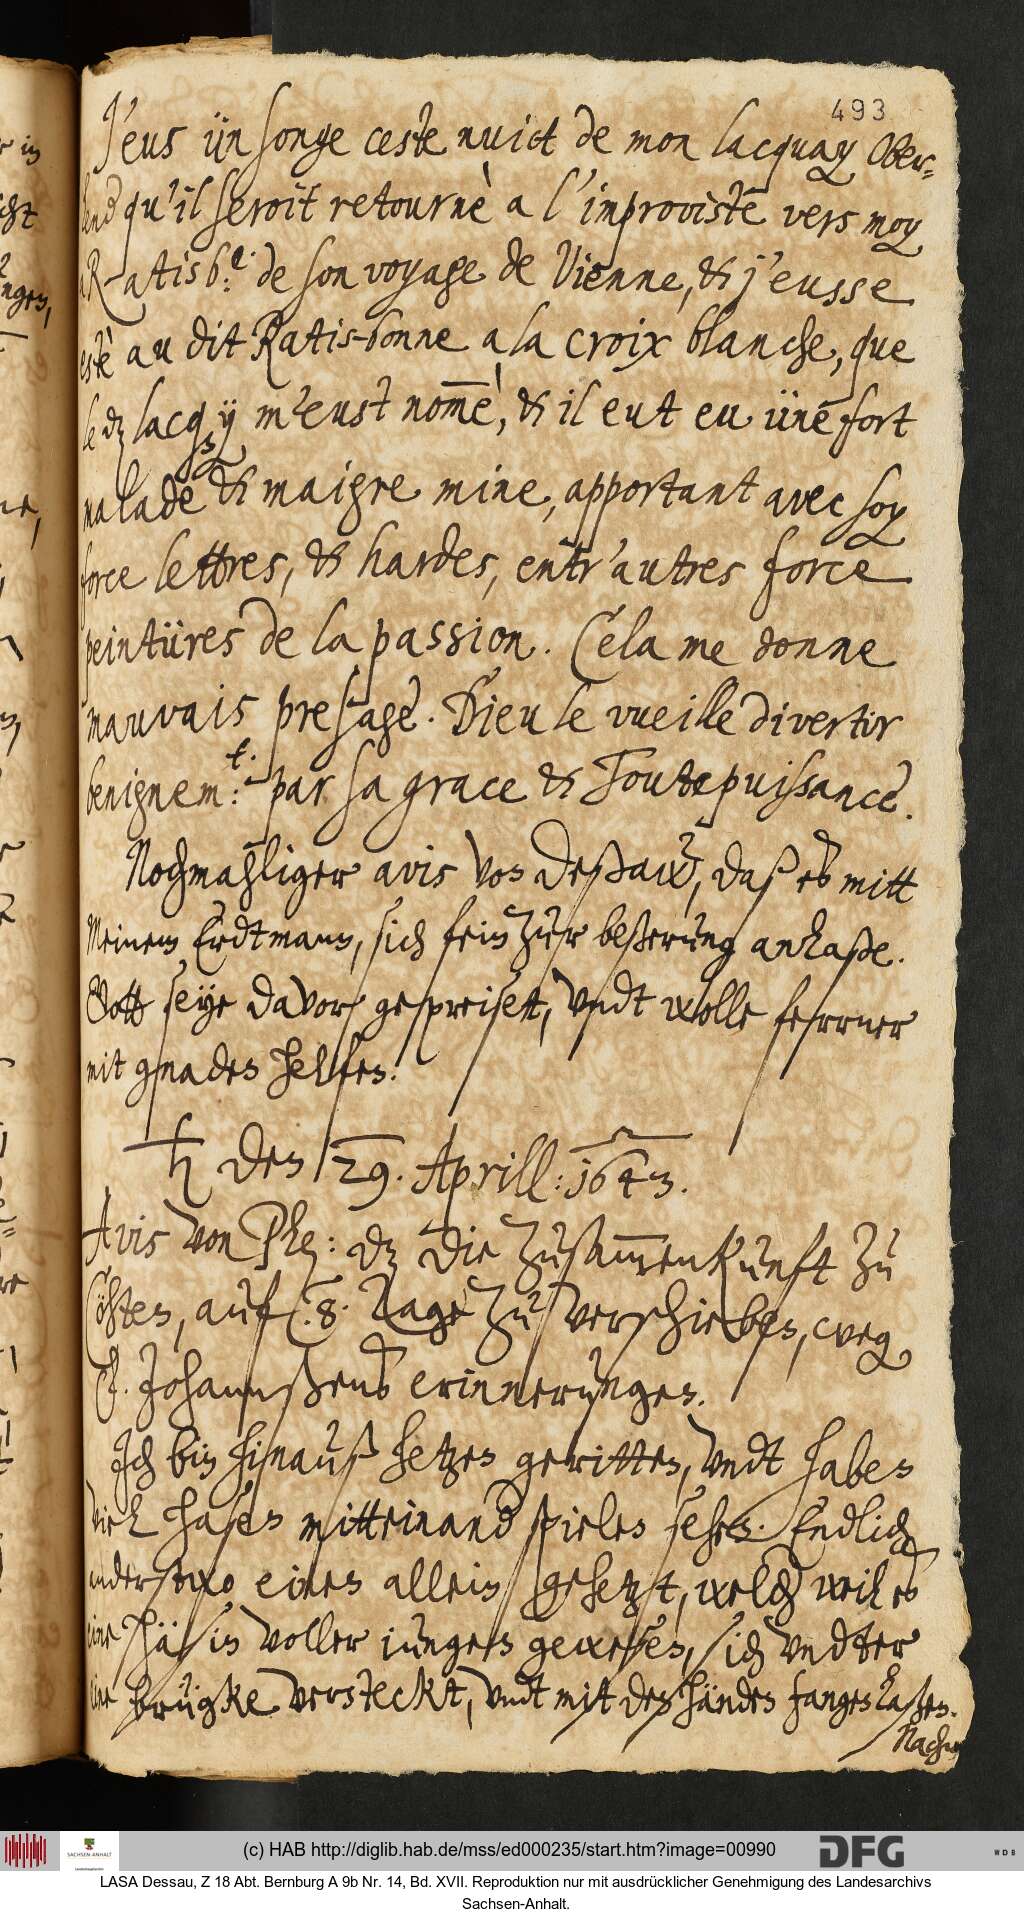 493
J'eus ün songe ceste nuict de mon lacquay Ober-
lend qu'il seroit retournè a l'improviste vers moy
a Ratisb:e de son voyage de Vienne, & j'eusse
estè au dit Ratis-bonne a la croix blanche, que
le dz lacqy m'eust nom̄è, & il eut eu üne fort
malade & maigre mine, apportant avec soy
force lettres, & hardes, entr'autres force
peintüres de la passion. Cela me donne
mauvais presage. Dieu le vueille divertir
benignem:t par sa grace & Toutepuissance.
Nochmahliger avis von Deßaw, daß es mitt
Meinem Erdtmann, sich fein zur beßerung anlaße.
Gott seye davor gepreiset, vndt wolle ferrner
mit gnaden helfen.
♄ den 29. Aprill: 1643.
Avis von dz die Zusam̄enkunft zu
Cöhten, auf 8. Tage zu verschieben, weg
E. Johannßens erinnerungen.
Ich bin hinauß hetzen geritten, vndt haben
viel hasen mitteinand spielen sehen. Endlich
einen allein gehetzt, welch weil es
eine häsin voller iungen gewesen, sich vndter
eine brügke versteckt, vndt mitt den händen fangen laßen.
Nachm
(c) HAB http://diglib.hab.de/mss/ed000235/start.htm?image=00990
SACHSEN-ANHALT
DFG
WDB
LASA Dessau, Z 18 Abt. Bernburg A 9b Nr. 14, Bd. XVII. Reproduktion nur mit ausdrücklicher Genehmigung des Landesarchivs
Sachsen-Anhalt.